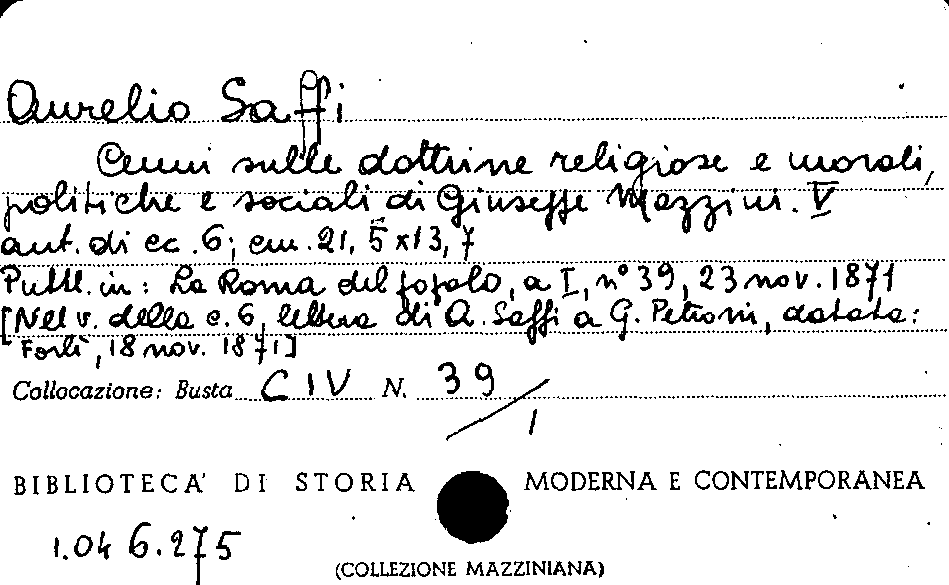 Aurelio Saffi
Cenni sulle dottrine religiose e morali,
politiche e sociali di Giuseppe Mazzini. V
aut. di cc. 6; cm. 21,5x13,7
Pubbl. in: La Roma del popolo, a I, n° 39, 23 nov. 1871
[Nel v. della c. 6, lettera di A. Saffi a G. Petroni, datata:
Forlì, 18 nov. 1871]
Collocazione: Busta C IV N. 39/1
BIBLIOTECA' DI STORIA MODERNA E CONTEMPORANEA
1.046.275
(COLLEZIONE MAZZINIANA)